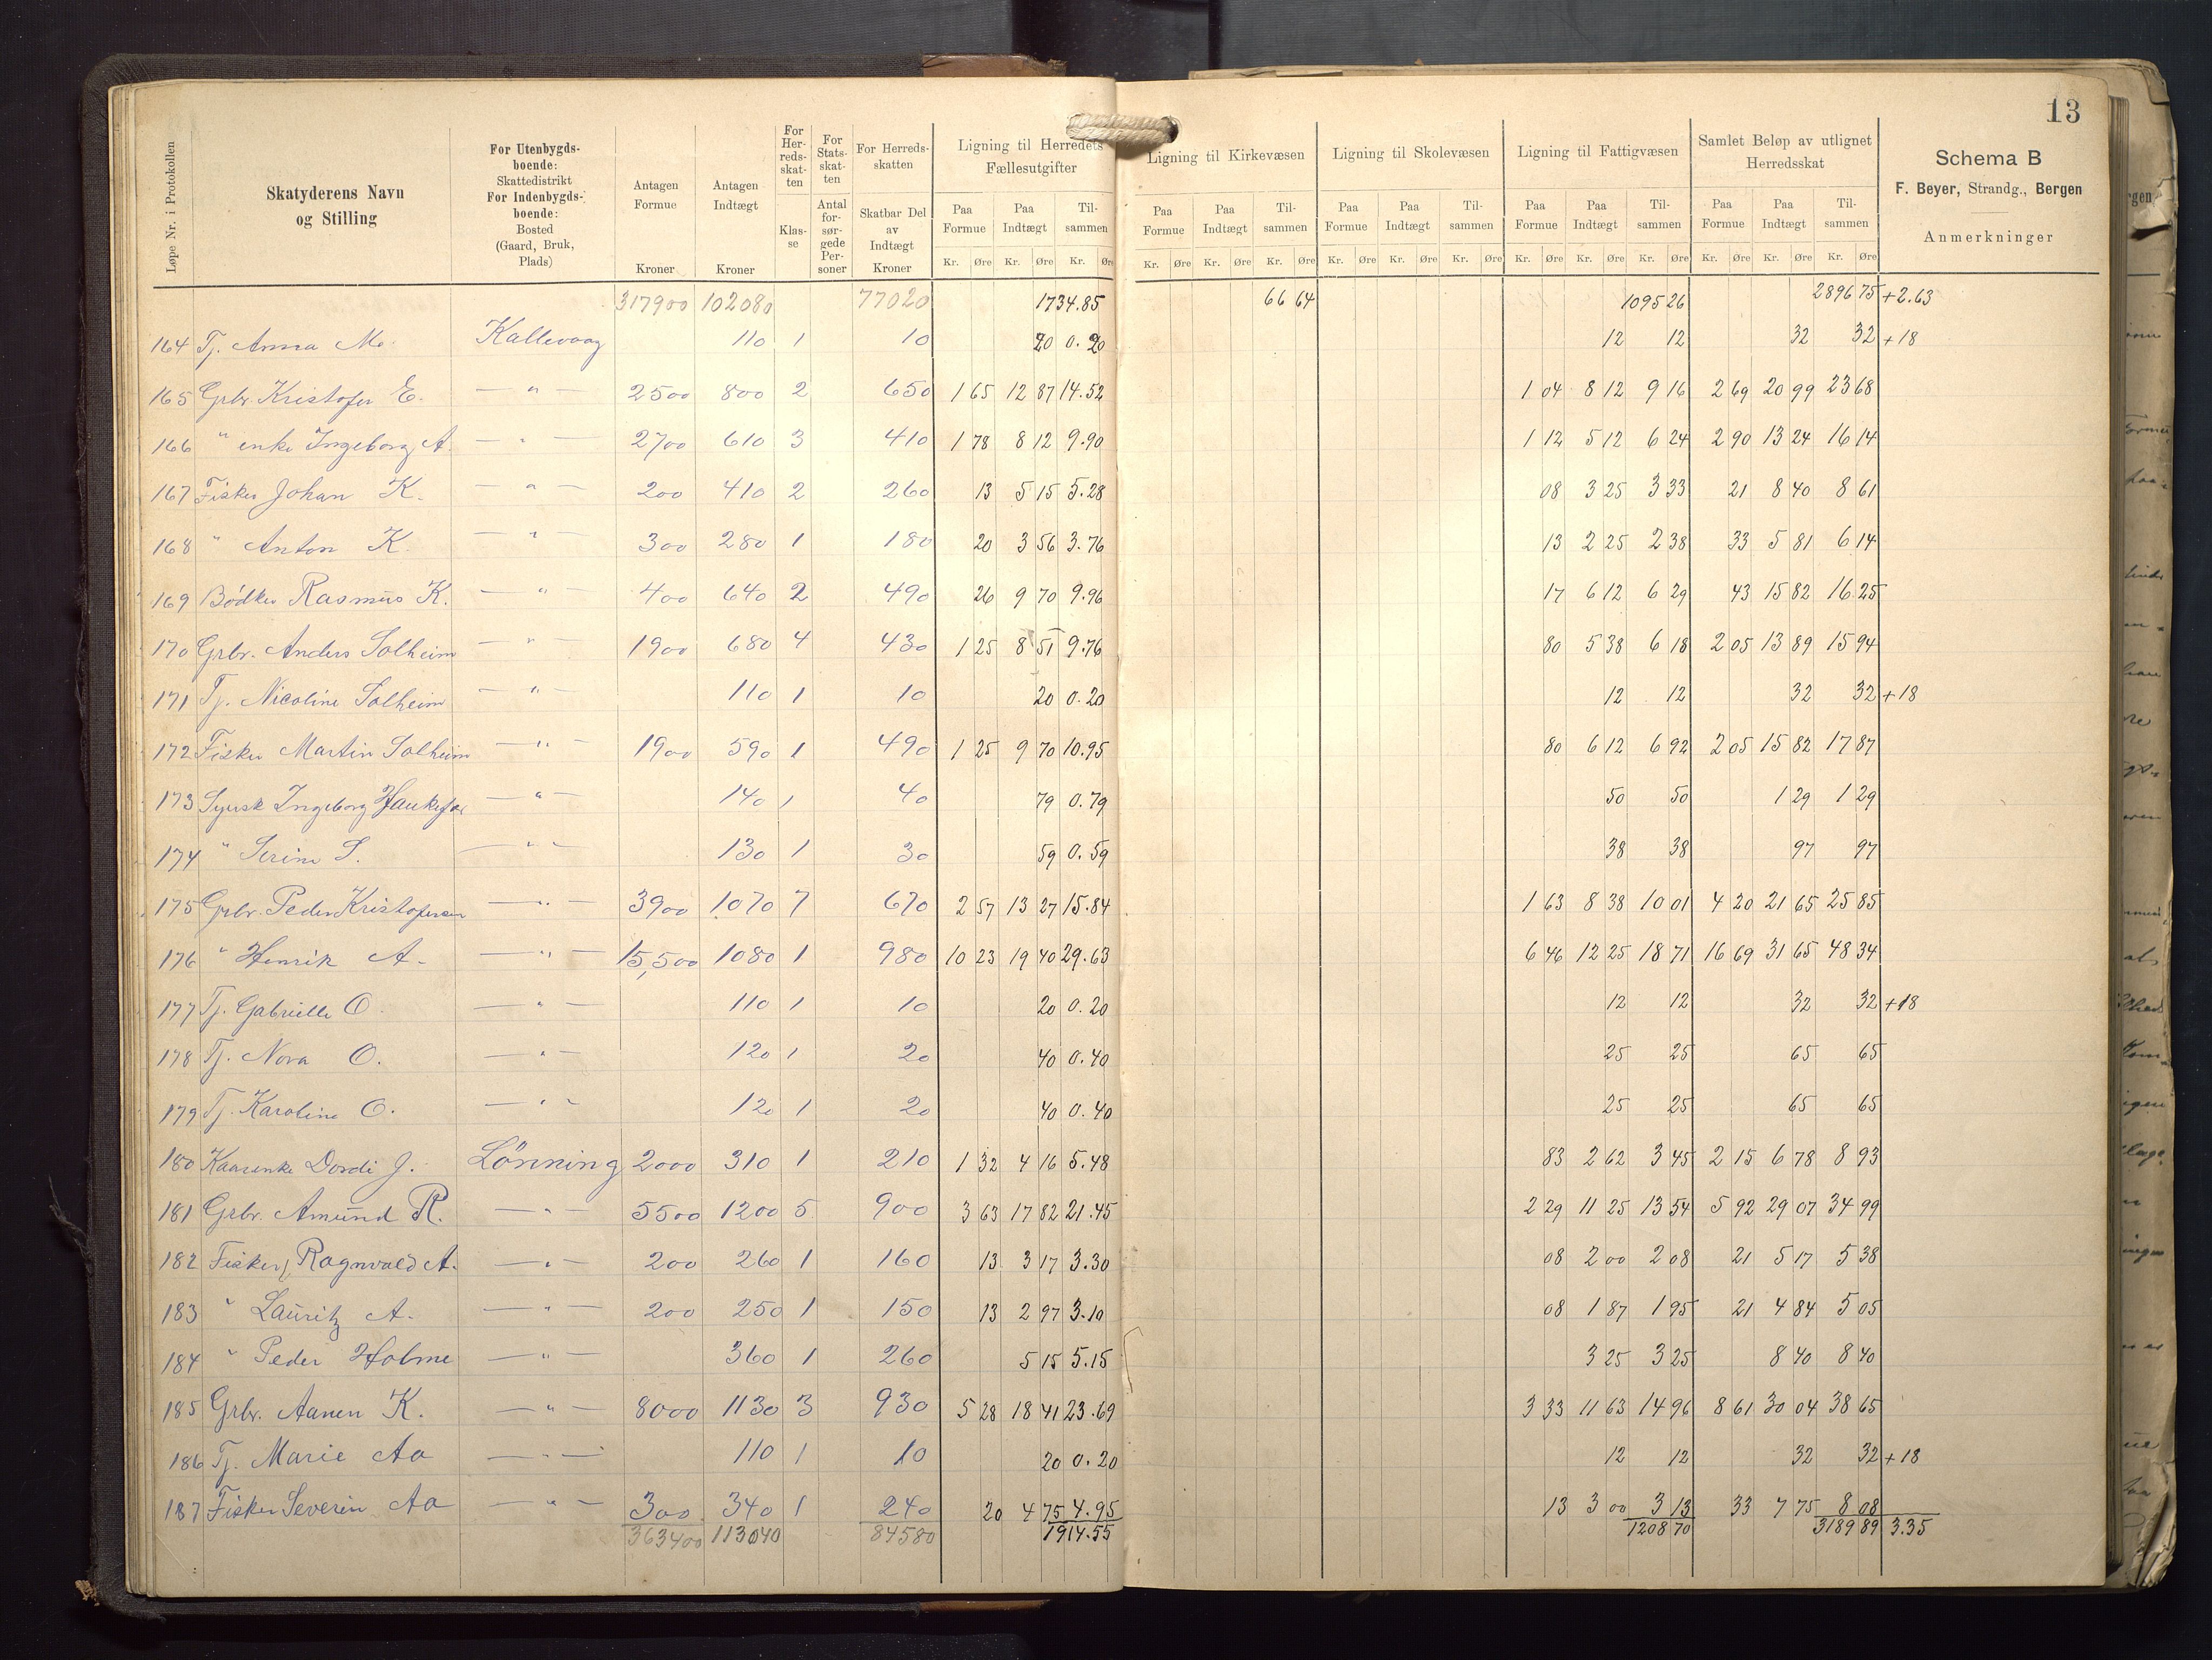 13
Løpe Nr. i Protokollen
Skatyderens Navn og Stilling
For Utenbygdsboende: Skattedistrikt For Indenbygdsboende: Bosted (Gaard, Bruk, Plads)
Antagen Formue Kroner
Antagen Indtægt Kroner
For Herredsskatten Klasse
For Statsskatten Antal forsørgede Personer
For Herredsskatten Skatbar Del av Indtægt Kroner
Ligning til Herredets Fællesutgifter
Paa Formue Paa Indtægt Tilsammen
Kr. Øre Kr. Øre Kr. Øre
Ligning til Kirkevæsen
Paa Formue Paa Indtægt Tilsammen
Kr. Øre Kr. Øre Kr. Øre
Ligning til Skolevæsen
Paa Formue Paa Indtægt Tilsammen
Kr. Øre Kr. Øre Kr. Øre
Ligning til Fattigvæsen
Paa Formue Paa Indtægt Tilsammen
Kr. Øre Kr. Øre Kr. Øre
Samlet Beløp av utlignet Herredsskat
Paa Formue Paa Indtægt Tilsammen
Kr. Øre Kr. Øre Kr. Øre
Schema B
F. Beyer, Strandg., Bergen
Anmerkninger
317900 102080 77020 1734.85 66 64 1095 26 2896 75 +2.63
164 Tj. Anna M. Kallevaag 110 1 10 20 0.20 12 12 32 32 +18
165 Grbr. Kristofer E. — " — 2500 800 2 650 1 65 12 87 14.52 1 04 8 12 9 16 2 69 20 99 23 68
166 " enke Ingeborg A. — " — 2700 610 3 410 1 78 8 12 9.90 1 12 5 12 6 24 2 90 13 24 16 14
167 Fisker Johan K. — " — 200 410 2 260 13 5 15 5.28 08 3 25 3 33 21 8 40 8 61
168 " Anton K. — " — 300 280 1 180 20 3 56 3.76 13 2 25 2 38 33 5 81 6 14
169 Bødker Rasmus K. — " — 400 640 2 490 26 9 70 9.96 17 6 12 6 29 43 15 82 16 25
170 Grbr. Anders Solheim — " — 1900 680 4 430 1 25 8 51 9.76 80 5 38 6 18 2 05 13 89 15 94
171 Tj. Nicoline Solheim — " — 110 1 10 20 0.20 12 12 32 32 +18
172 Fisker Martin Solheim — " — 1900 590 1 490 1 25 9 70 10.95 80 6 12 6 92 2 05 15 82 17 87
173 Syersk Ingeborg — " — 140 1 40 79 0.79 50 50 1 29 1 29
174 " Serine S. — " — 130 1 30 59 0.59 38 38 97 97
175 Grbr. Peder Kristofersen — " — 3900 1070 7 670 2 57 13 27 15.84 1 63 8 38 10 01 4 20 21 65 25 85
176 " Henrik A. — " — 15,500 1080 1 980 10 23 19 40 29.63 6 46 12 25 18 71 16 69 31 65 48 34
177 Tj. Gabrielle O. — " — 110 1 10 20 0.20 12 12 32 32 +18
178 Tj. Nora O. — " — 120 1 20 40 0.40 25 25 65 65
179 Tj. Karoline O. — " — 120 1 20 40 0.40 25 25 65 65
180 Kaarenke Dordi J. Lönning 2000 310 1 210 1 32 4 16 5.48 83 2 62 3 45 2 15 6 78 8 93
181 Grbr. Amund R. — " — 5500 1200 5 900 3 63 17 82 21.45 2 29 11 25 13 54 5 92 29 07 34 99
182 Fisker Ragnvald A. — " — 200 260 1 160 13 3 17 3.30 08 2 00 2 08 21 5 17 5 38
183 " Lauritz A. — " — 200 250 1 150 13 2 97 3.10 08 1 87 1 95 21 4 84 5 05
184 " Peder Holme — " — 360 1 260 5 15 5.15 3 25 3 25 8 40 8 40
185 Grbr. Aanen K. — " — 8000 1130 3 930 5 28 18 41 23.69 3 33 11 63 14 96 8 61 30 04 38 65
186 Tj. Marie Aa — " — 110 1 10 20 0.20 12 12 32 32 +18
187 Fisker Severin Aa — " — 300 340 1 240 20 4 75 4.95 13 3 00 3 13 33 7 75 8 08
363400 113040 84580 1914.55 1208 70 3189 89 3.35